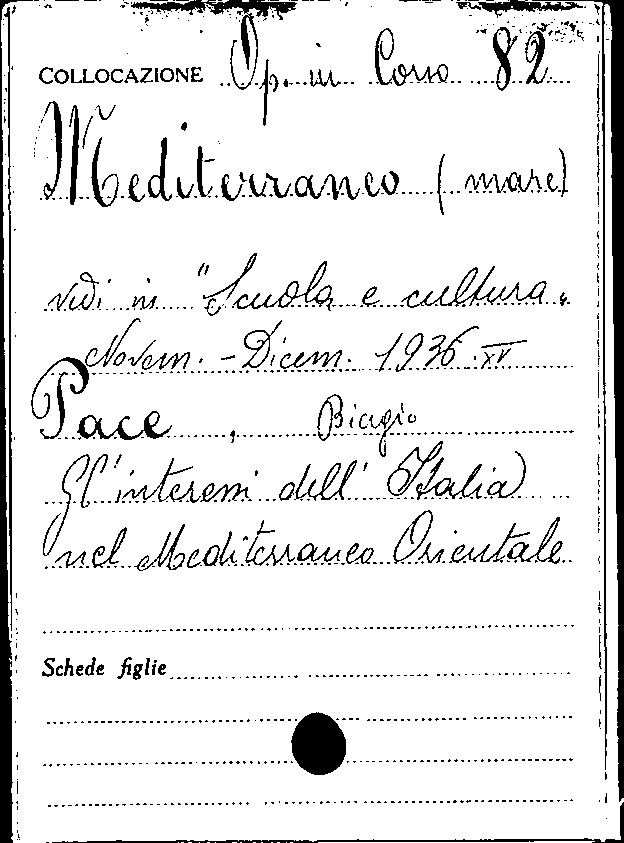 COLLOCAZIONE Op. in Corso 82
Mediterraneo (mare)
vedi in "Scuola e cultura"
Novem. - Dicem. 1936. XV
Pace, Biagio
Gl'interessi dell'Italia
nel Mediterraneo Orientale
Schede figlie